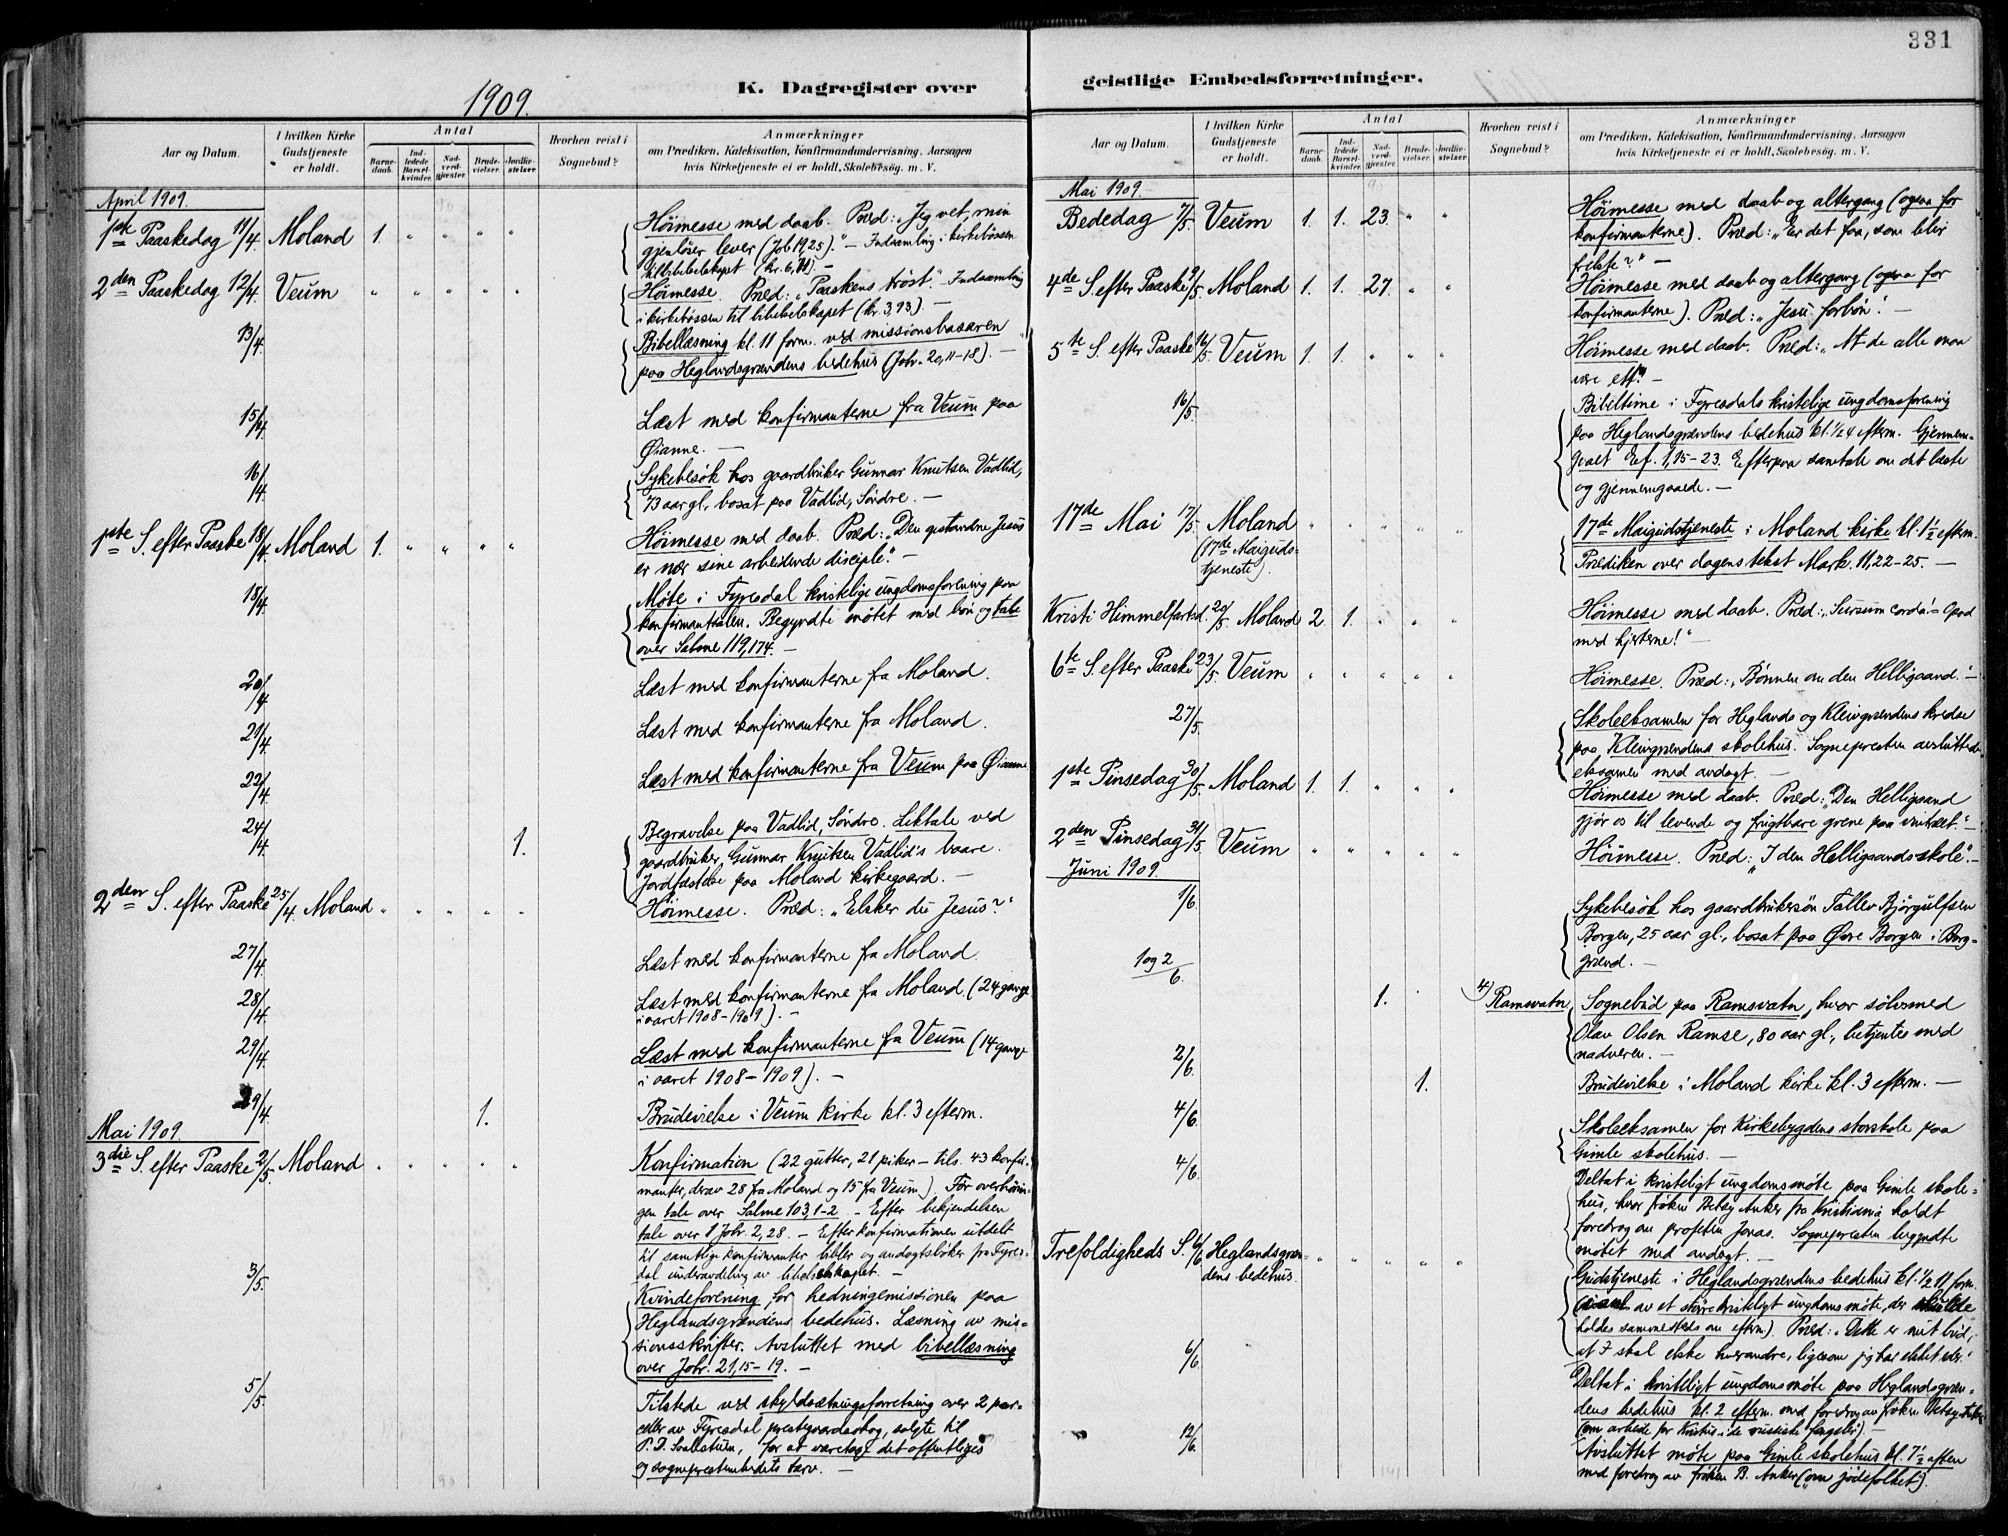 331
K. Dagregister over
1909.
Aar og Datum.
I hvilken Kirke Gudstjeneste er holdt.
Antal
Barne-daab.
Ind-ledede Barsel-kvinder.
Nad-verd-gjæster.
Brude-vielser.
Jordfæ-stelser.
Hvorhen reist i Sognebud?
Anmærkninger
om Prædiken, Katekisation, Konfirmandundervisning, Aarsagen
hvis Kirketjeneste ei er holdt, Skolebesøg. m. V.
April 1909.
1ste Paaskedag 11/4. Moland 1. " " " "
Höimesse med daab. Præd: „Jeg vet, min
gjenlöser lever (Job 19,25)." – Indsamling i kirkebössen
til bibelselskapet (kr. 6,71). –
2den Paaskedag 12/4. Veum " " " " "
Höimesse. Præd: „Paaskens tröst." Indsamling
i kirkebössen til bibelselskapet (kr. 3,93).
13/4.
Bibellæsning kl. 11 form. ved missionsbasaren
paa Heglandsgrændens bedehus (Joh. 20,11-18). –
15/4.
Læst med konfirmanterne fra Veum paa
Øianne. –
16/4.
Sykebesök hos gaardbruker Gunnar Knutsen Vadlid,
73 aar gl., bosat paa Vadlid, Söndre. –
1ste S. efter Paaske 18/4. Moland 1. " " " "
Höimesse med daab. Præd: „Den opstandne Jesus
er nær sine arbeidende disciple." –
18/4.
Möte i Fyresdal kristelige ungdomsforening paa
konfirmantsalen. Begyndte mötet med bön og tale
over Salme 119,174. –
20/4.
Læst med konfirmanterne fra Moland.
21/4.
Læst med konfirmanterne fra Moland.
22/4.
Læst med konfirmanterne fra Veum paa Øianne
24/4. 1.
Begravelse paa Vadlid, Söndre. Liktale ved
gaardbruker, Gunnar Knutsen Vadlid's baare.
Jordfæstelse paa Moland kirkegaard. –
2den S. efter Paaske 25/4. Moland " " " " "
Höimesse. Præd: „Elsker du Jesus?"
27/4.
Læst med konfirmanterne fra Moland.
28/4.
Læst med konfirmanterne fra Moland. (24 gange
i aaret 1908-1909). –
29/4.
Læst med konfirmanterne fra Veum (14 gange
i aaret 1908-1909). –
29/4. 1.
Brudevielse i Veum kirke kl. 3 efterm.
Mai 1909.
3die S. efter Paaske 2/5. Moland " " " " "
Konfirmation (22 gutter, 21 piker – tils. 43 konfir-
manter, derav 28 fra Moland og 15 fra Veum). Før overhörin-
gen tale over Salme 103,1-2. – Efter bekjendelsen
tale over 1 Joh. 2,28. – Efter konfirmationen utdelt
til samtlige konfirmanter bibler og andagtsböker fra Fyres-
dal underavdeling av bibelselskapet. –
3/5.
Kvindeforening for hedningemissionen paa
Heglandsgrændens bedehus. Læsning av mis-
sionsskrifter. Avsluttet med bibellæsning
over Joh. 21,15-19. –
5/5.
Tilstede ved skyldsætningsforretning over 2 par-
celler av Fyresdal prestegaardsskog, solgte til
P. D. Svalestuen, for at varetage det offentliges
og sogneprestembedets tarv. –
geistlige Embedsforretninger.
Aar og Datum.
I hvilken Kirke Gudstjeneste er holdt.
Antal
Barne-daab.
Ind-ledede Barsel-kvinder.
Nad-verd-gjæster.
Brude-vielser.
Jordfæ-stelser.
Hvorhen reist i Sognebud?
Anmærkninger
om Prædiken, Katekisation, Konfirmandundervisning, Aarsagen
hvis Kirketjeneste ei er holdt, Skolebesøg. m. V.
Mai 1909.
Bededag 7/5. Veum 1. 1. 23. " "
Höimesse med daab og altergang (ogsaa for
konfirmanterne). Præd: „Er det faa, som blir
frelste?" –
4de S. efter Paaske 9/5. Moland 1. 1. 27. " "
Höimesse med daab og altergang (ogsaa for
konfirmanterne). Præd: „Jesu forbön". –
5te S. efter Paaske 16/5. Veum 1. 1. " " "
Höimesse med daab. Præd: „At de alle maa
være ett." –
16/5.
Bibeltime i Fyresdals kristelige ungdomsforening
paa Heglandsgrændens bedehus kl. 1/2 4 efterm. Gjennem-
gaaet Ef. 1,15-23. Efterpaa samtale om det læste
og gjennemgaaede. –
17de Mai 17/5. Moland " " " " "
(17de Maiguds-
tjeneste).
17de Maigudstjeneste i Moland kirke kl. 1 1/2 efterm.
Prædiken over dagens tekst Mark. 11,22-25. –
Kristi Himmelfartsd. 20/5. Moland 2 1. " " "
Höimesse med daab. Præd: „Sursum corda! – Opad
med hjerterne!" –
6te S. efter Paaske 23/5. Veum " " " " "
Höimesse. Præd: „Bönnen om den Helligaand." –
27/5.
Skoleeksamen for Heglands og Kleivgrændens kredse
paa Kleivgrændens skolehus. Sognepresten avsluttede
eksamen med andagt. –
1ste Pinsedag 30/5. Moland 1. 1. " " "
Höimesse med daab. Præd: „Den Helligaand
gjör os til levende og frugtbare grene paa vintræet." –
2den Pinsedag 31/5. Veum " " " " "
Höimesse. Præd: „I den Helligaands skole". –
Juni 1909.
1/6.
Sykebesök hos gaardbrukersön Tallev Björgulfsen
Borgen, 25 aar gl., bosat paa Øvre Borgen i Borg-
grænd. –
1 og 2/6. 1. 4) Ramsvatn
Sognebud paa Ramsvatn, hvor sölvsmed
Olav Olsen Ramse, 80 aar gl., betjentes med
nadveren. –
2/6. 1.
Brudevielse i Moland kirke kl. 3 efterm. –
4/6.
Skoleeksamen for Kirkebygdens storskole paa
Gimle skolehus. –
4/6.
Deltat i kristeligt ungdomsmöte paa Gimle skole-
hus, hvor fröken Betsy Anker fra Kristiania holdt
foredrag om profeten Jonas. Sognepresten begyndte
mötet med andagt. –
Trefoldigheds S. 6/6. Heglandsgræn-
dens bedehus. " " " " "
Gudstjeneste i Heglandsgrændens bedehus kl. 1/2 11 form.
av et större kristeligt ungdomsmöte, der skulde
holdes sammesteds om efterm.) Præd: „Dette er mit bud,
at I skal elske hverandre, likesom jeg har elsket eder."
6/6.
Deltat i kristeligt ungdomsmöte paa Heglandsgræn-
dens bedehus kl. 2 efterm. med foredrag av fröken Betsy Anker
(om arbeide for Kristus i de russiske fængsler). –
12/6.
Avsluttet möte paa Gimle skolehus kl. 7 1/2 aften
med foredrag av fröken B. Anker („om jödefolket").